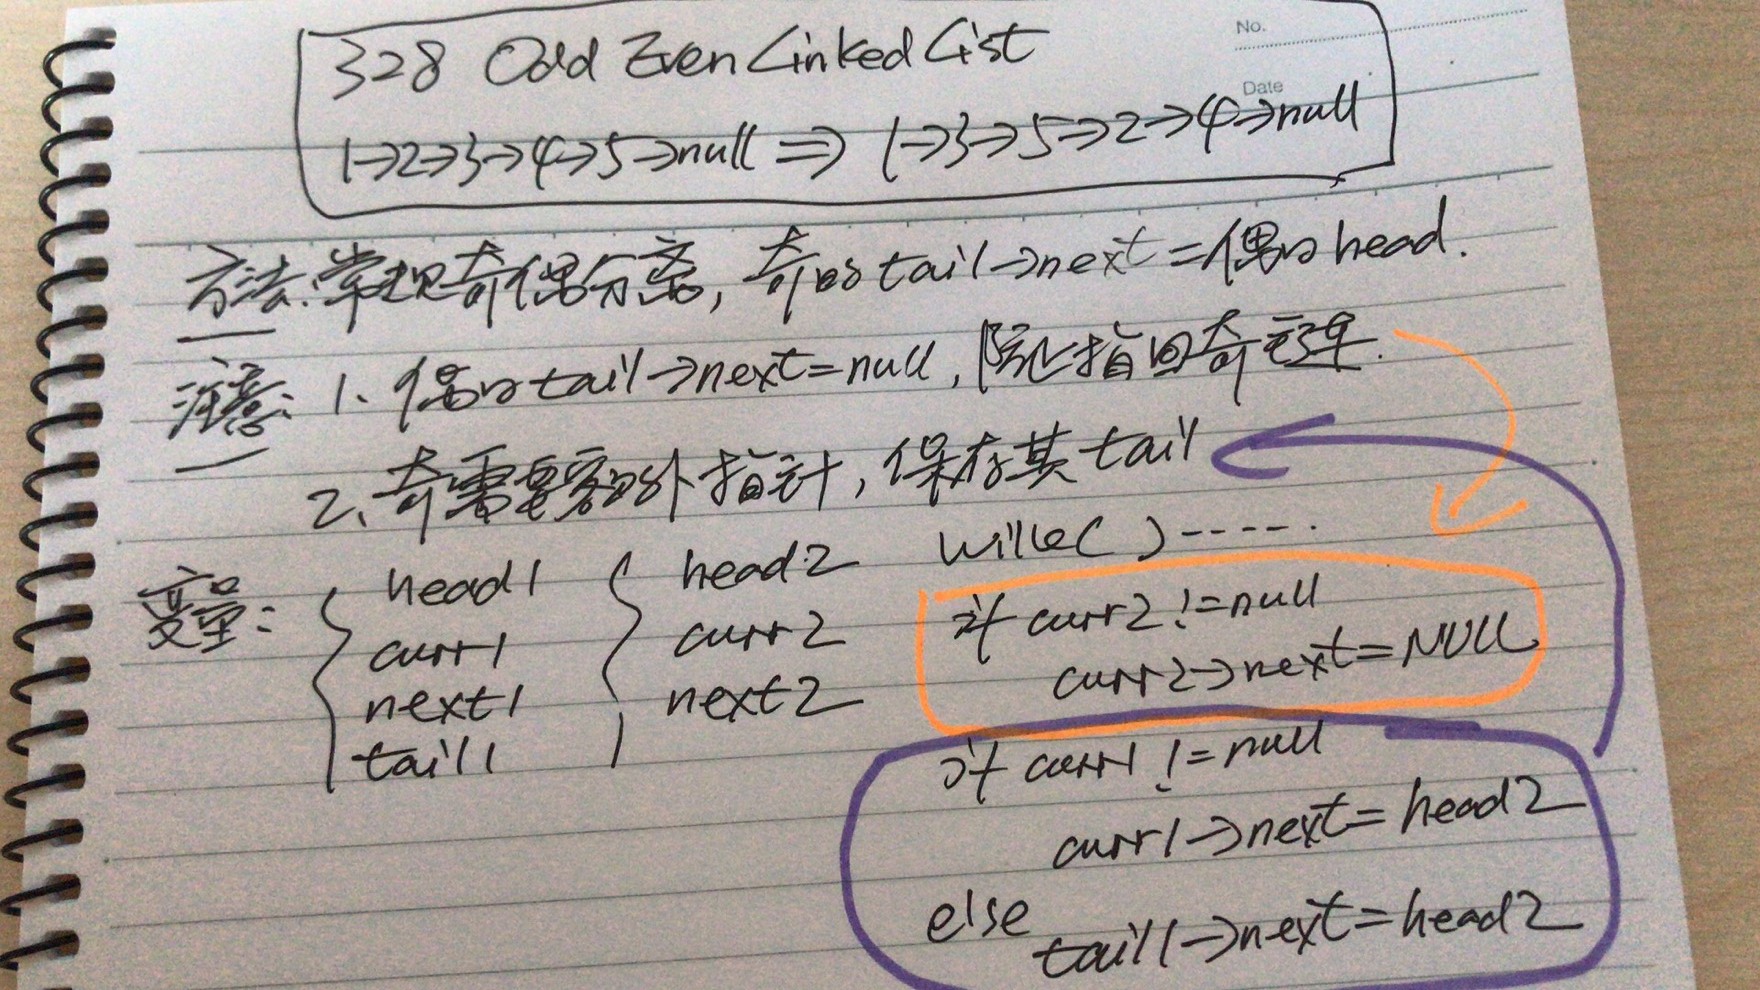 No.
Date
328 Odd Even Linked List
1->2->3->4->5->null => 1->3->5->2->4->null
方法:常规奇偶分离,奇的tail->next=偶的head.
注意:1、偶的tail->next=null,防止指回奇元素.
2、奇需要额外指针,保存其tail
while( )-----.
变量:
head1
curr1
next1
tail1
head2
curr2
next2
if curr2 !=null
curr2->next=NULL
if curr1 !=null
curr1->next=head2
else
tail1->next=head2